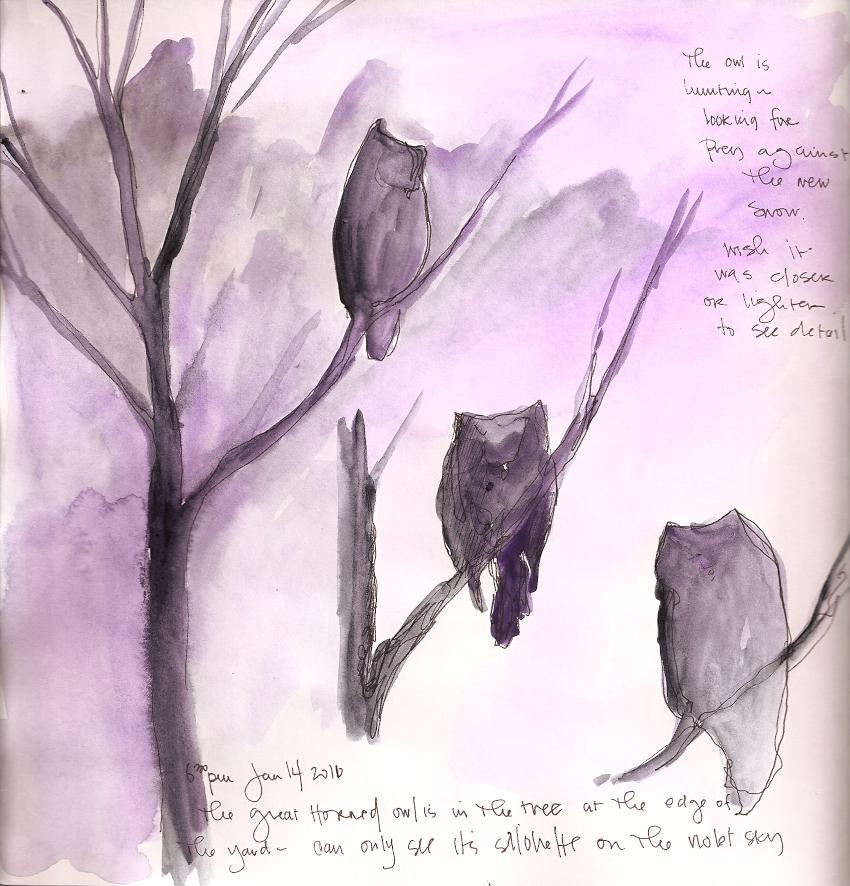 The owl is
hunting~
looking for
prey against
the new
snow.
wish it
was closer
or lighter
to see detail
6:00 pm Jan 14 2010
the great Horned owl is in the tree at the edge of
the yard~ can only see its sillohette on the violet sky